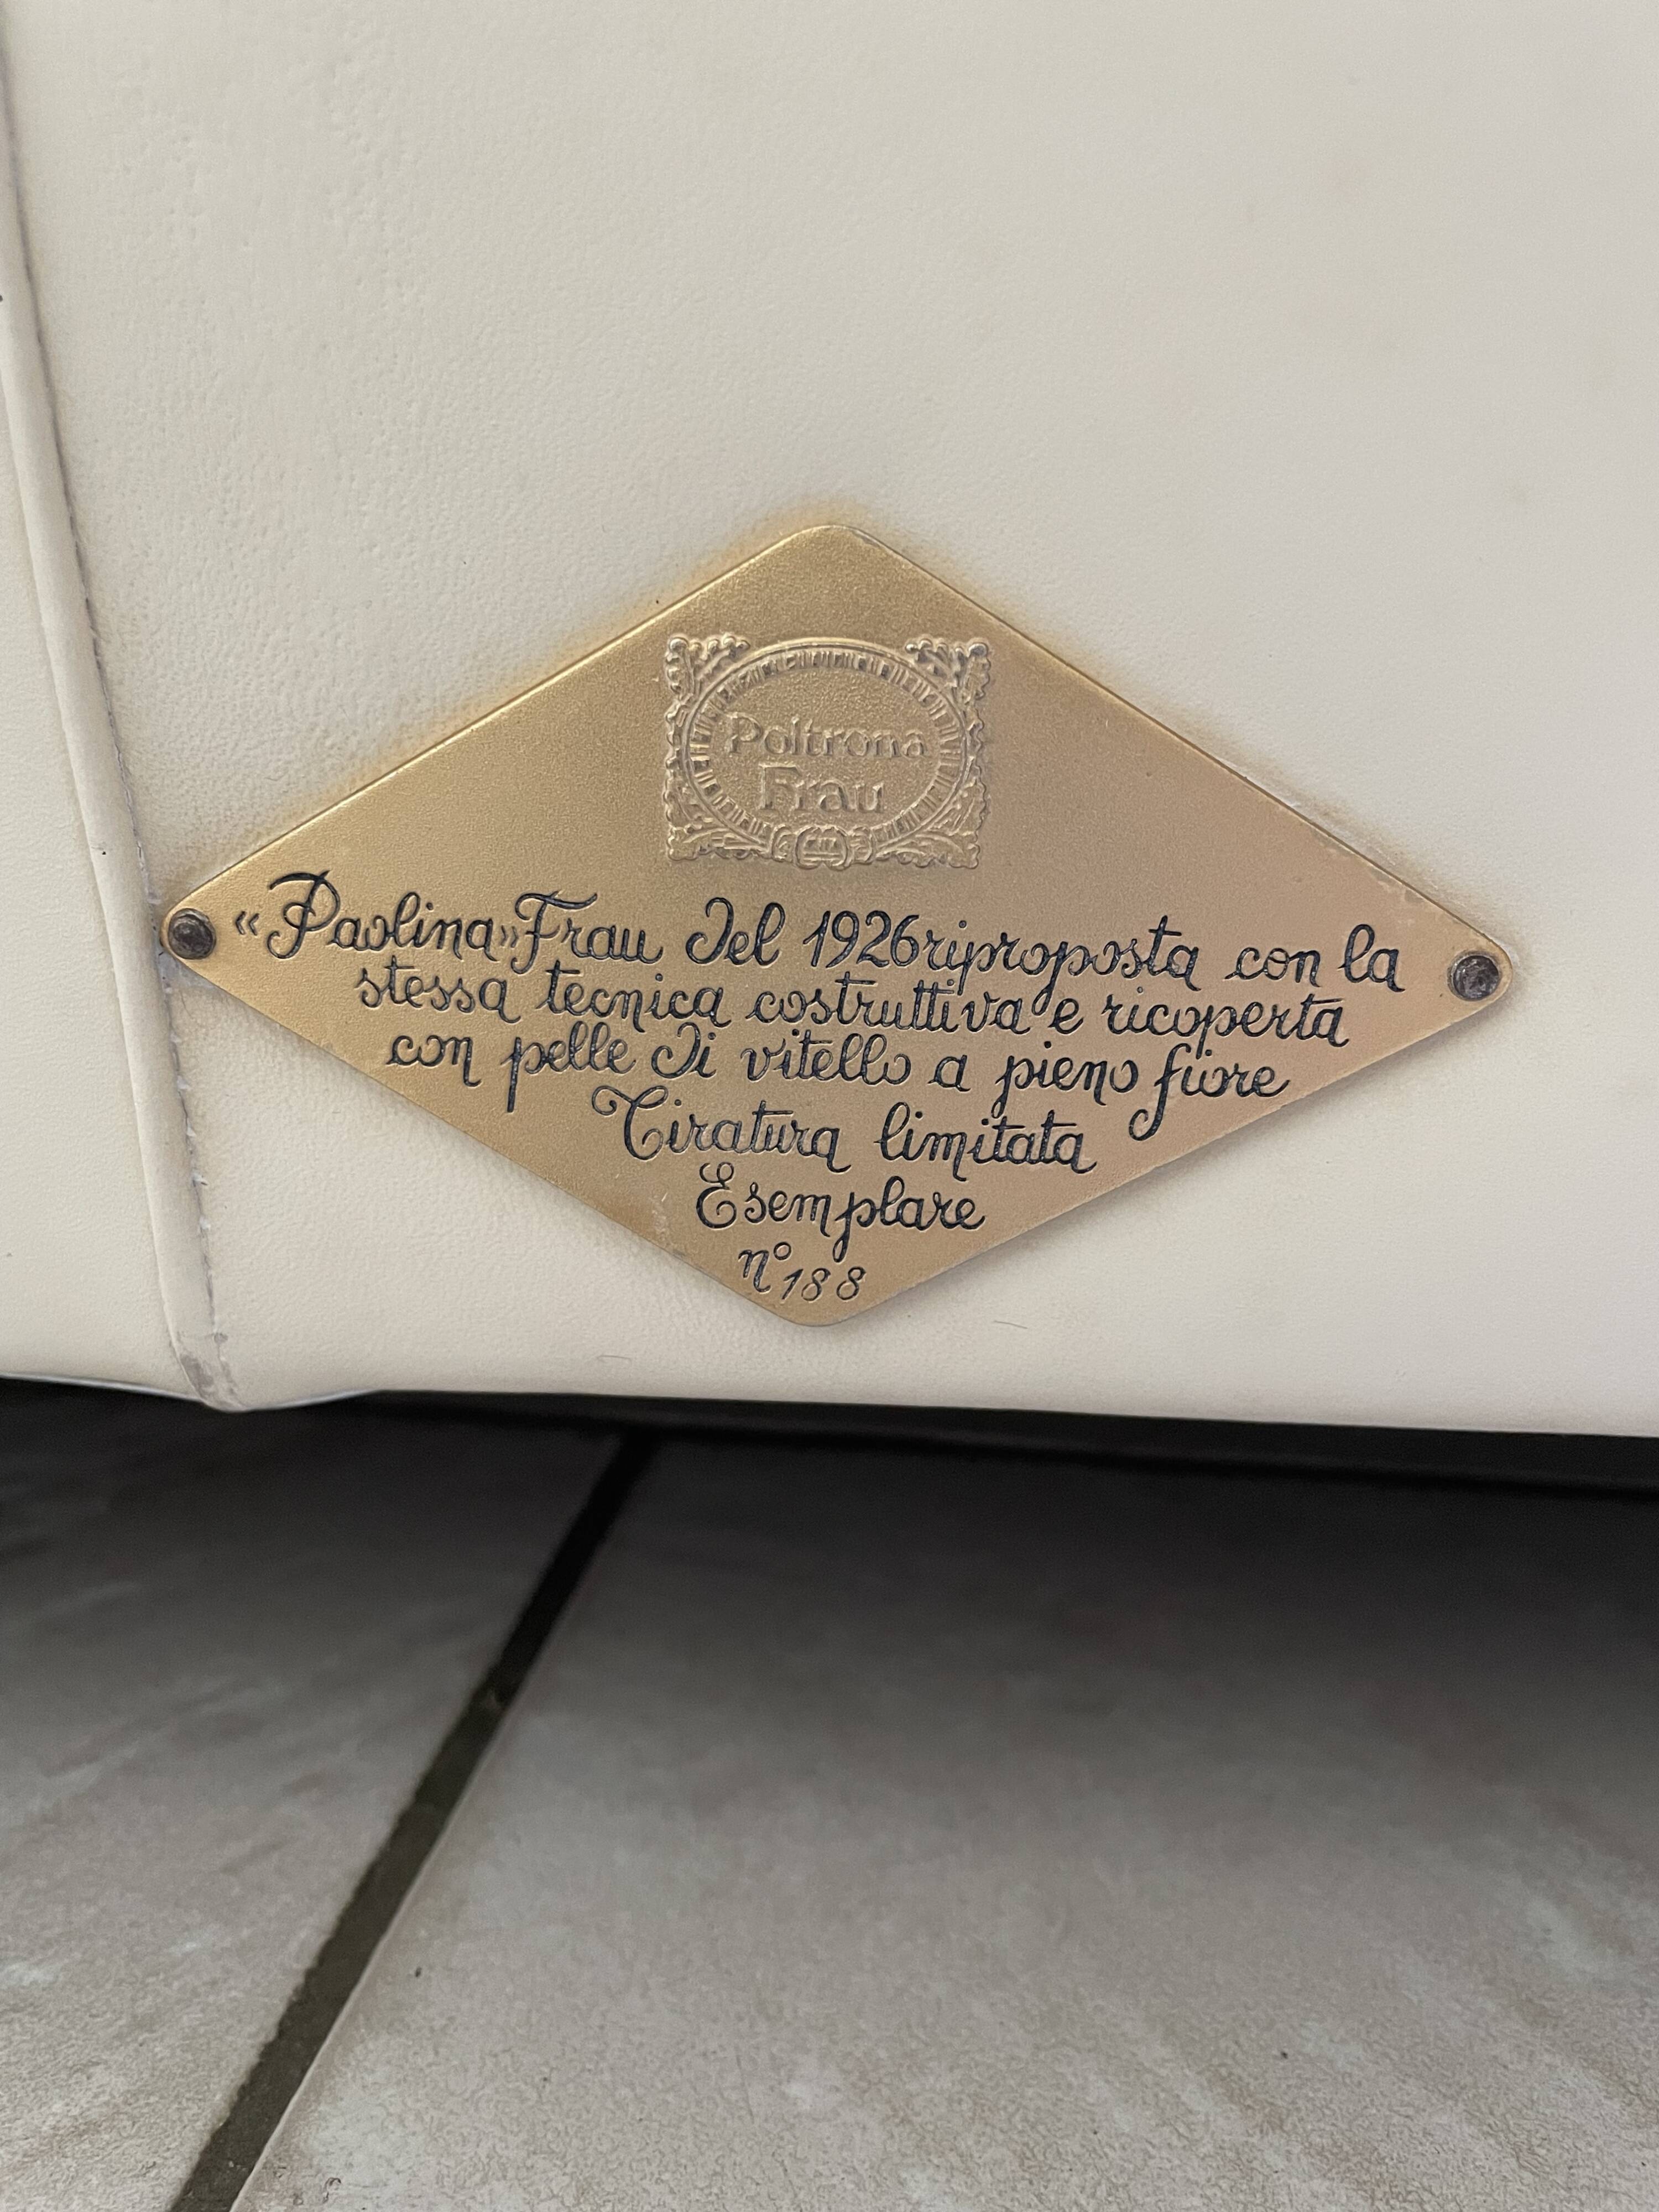 Poltrona
Frau
«Paolina» Frau del 1926 riproposta con la
stessa tecnica costruttiva e ricoperta
con pelle di vitello a pieno fiore
Tiratura limitata
Esemplare
n° 188